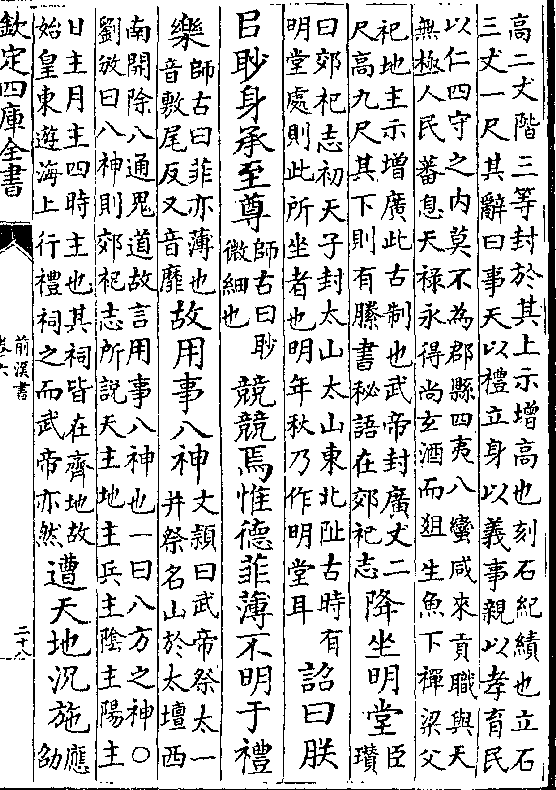 高二丈階三等封於其上示增高也刻石紀績也立石
三丈一尺其辭曰事天以禮立身以義事親以孝育民
以仁四守之內莫不為郡縣四夷八蠻咸來貢職與天
無極人民蕃息天祿永得尚玄酒而俎生魚下禪梁父
祀地主示增廣此古制也武帝封廣丈二
尺高九尺其下則有縢書秘語在郊祀志
降坐明堂
臣
瓚
曰郊祀志初天子封太山太山東北阯古時有
明堂處則此所坐者也明年秋乃作明堂耳
詔曰朕
㠯眇身承至尊
師古曰眇
微細也
競競焉惟德菲薄不明于禮
樂
師古曰菲亦薄也
音敷尾反又音靡
故用事八神
文穎曰武帝祭太一
并祭名山於太壇西
南開除八通鬼道故言用事八神也一曰八方之神〇
劉攽曰八神則郊祀志所說天主地主兵主陰主陽主
日主月主四時主也其祠皆在齊地故
始皇東遊海上行禮祠之而武帝亦然
遭天地況施
應
劭
欽定四庫全書
前漢書
卷六